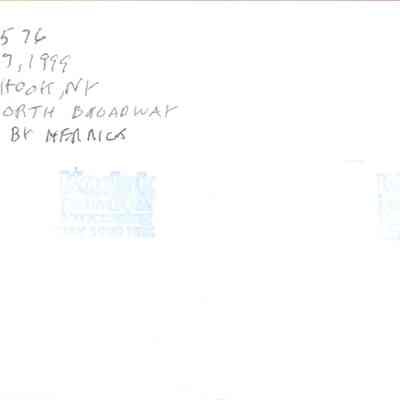 576
7, 1999
HOOK, NY
ORTH BROADWAY
BY MERRICK